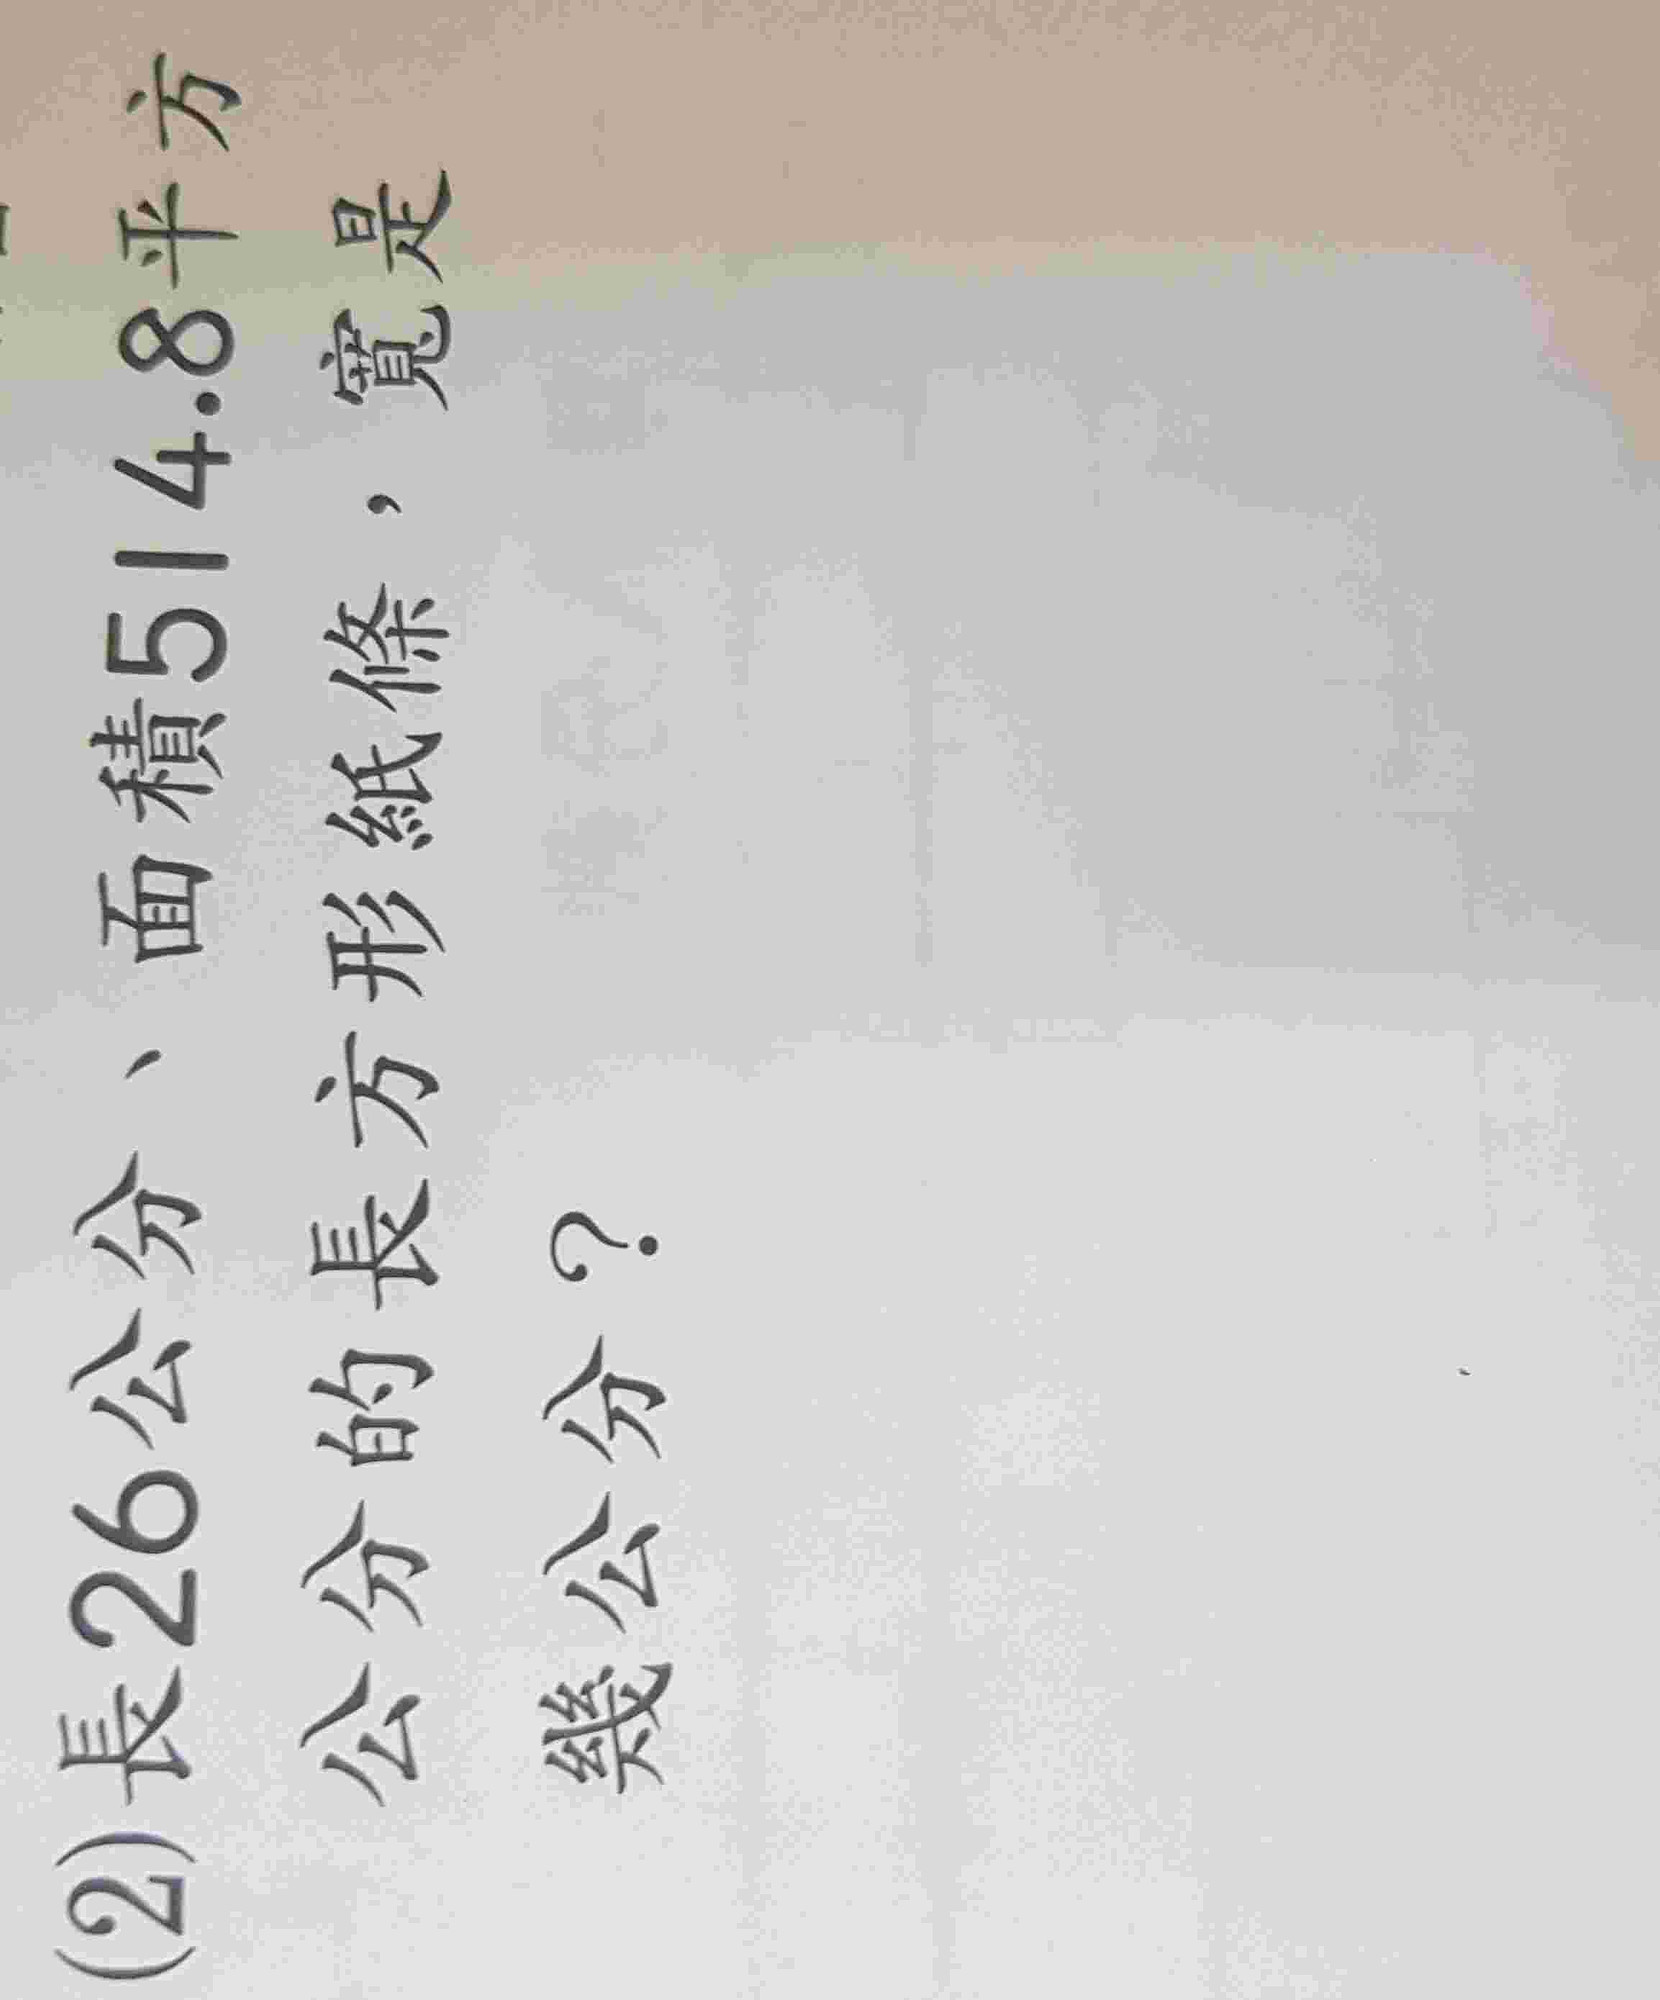 (2)長26公分、面積514.8平方
公分的長方形紙條，寬是
幾公分？